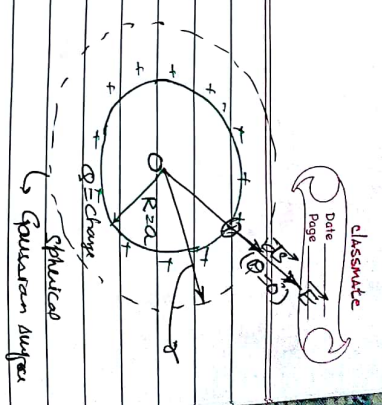 classmate
Date
Page
O
R=a
r
(θ=0)
Q=charge
Spherical
↳ Gaussian surface